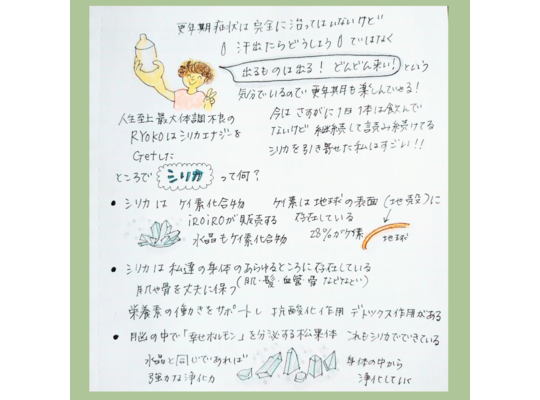 更年期症状は完全に治ってはいないけど
汗出たらどうしよう ではなく
出るものは出る！どんどん来い！ という
気分でいるので更年期も楽しんでいる！
人生至上最大体調不良の
RYOKOはシリカエナジーを
Getした
今はさすがに1日1本は飲んで
ないけど 継続して読み続けてる
シリカを引き寄せた私はすごい!!
ところで シリカ って何？
● シリカは ケイ素化合物
iROiROが販売する
水晶もケイ素化合物
ケイ素は地球の表面（地殻）に
存在している
28％がケイ素
地球
● シリカは私達の身体のあらゆるところに存在している
肌や骨を丈夫に保つ（肌・髪・血管・骨などなど）
栄養素の働きをサポートし 抗酸化作用 デトックス作用がある
● 脳の中で「幸せホルモン」を分泌する松果体 これもシリカでできている
水晶と同じであれば
強力な浄化力
身体の中から
浄化して